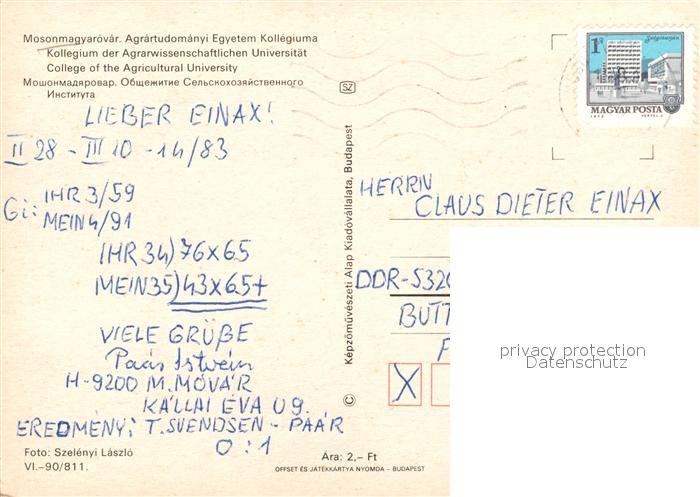 Mosonmagyaróvár. Agrártudományi Egyetem Kollégiuma
Kollegium der Agrarwissenschaftlichen Universität
College of the Agricultural University
Мошонмадяровар. Общежитие Сельскохозяйственного
Института
LIEBER EINAX!
II 28 - III 10 - 14/83
Gi: IHR 3/59
MEIN 4/91
IHR 34) 76x65
MEIN 35) 43x65+
VIELE GRÜßE
Paár István
H-9200 M.MÓVÁR
KÁLLAI ÉVA U 9.
EREDMÉNY: T. SVENDSEN - PAÁR
0:1
Foto: Szelényi László
VI.-90/811.
Ára: 2,- Ft
OFFSET ÉS JÁTÉKKÁRTYA NYOMDA - BUDAPEST
SZ
© Képzőművészeti Alap Kiadóvállalata, Budapest
1 Ft
Salgótarján
MAGYAR POSTA
1972
HERRN
CLAUS DIETER EINAX
DDR-532
BUTT
X
privacy protection
Datenschutz